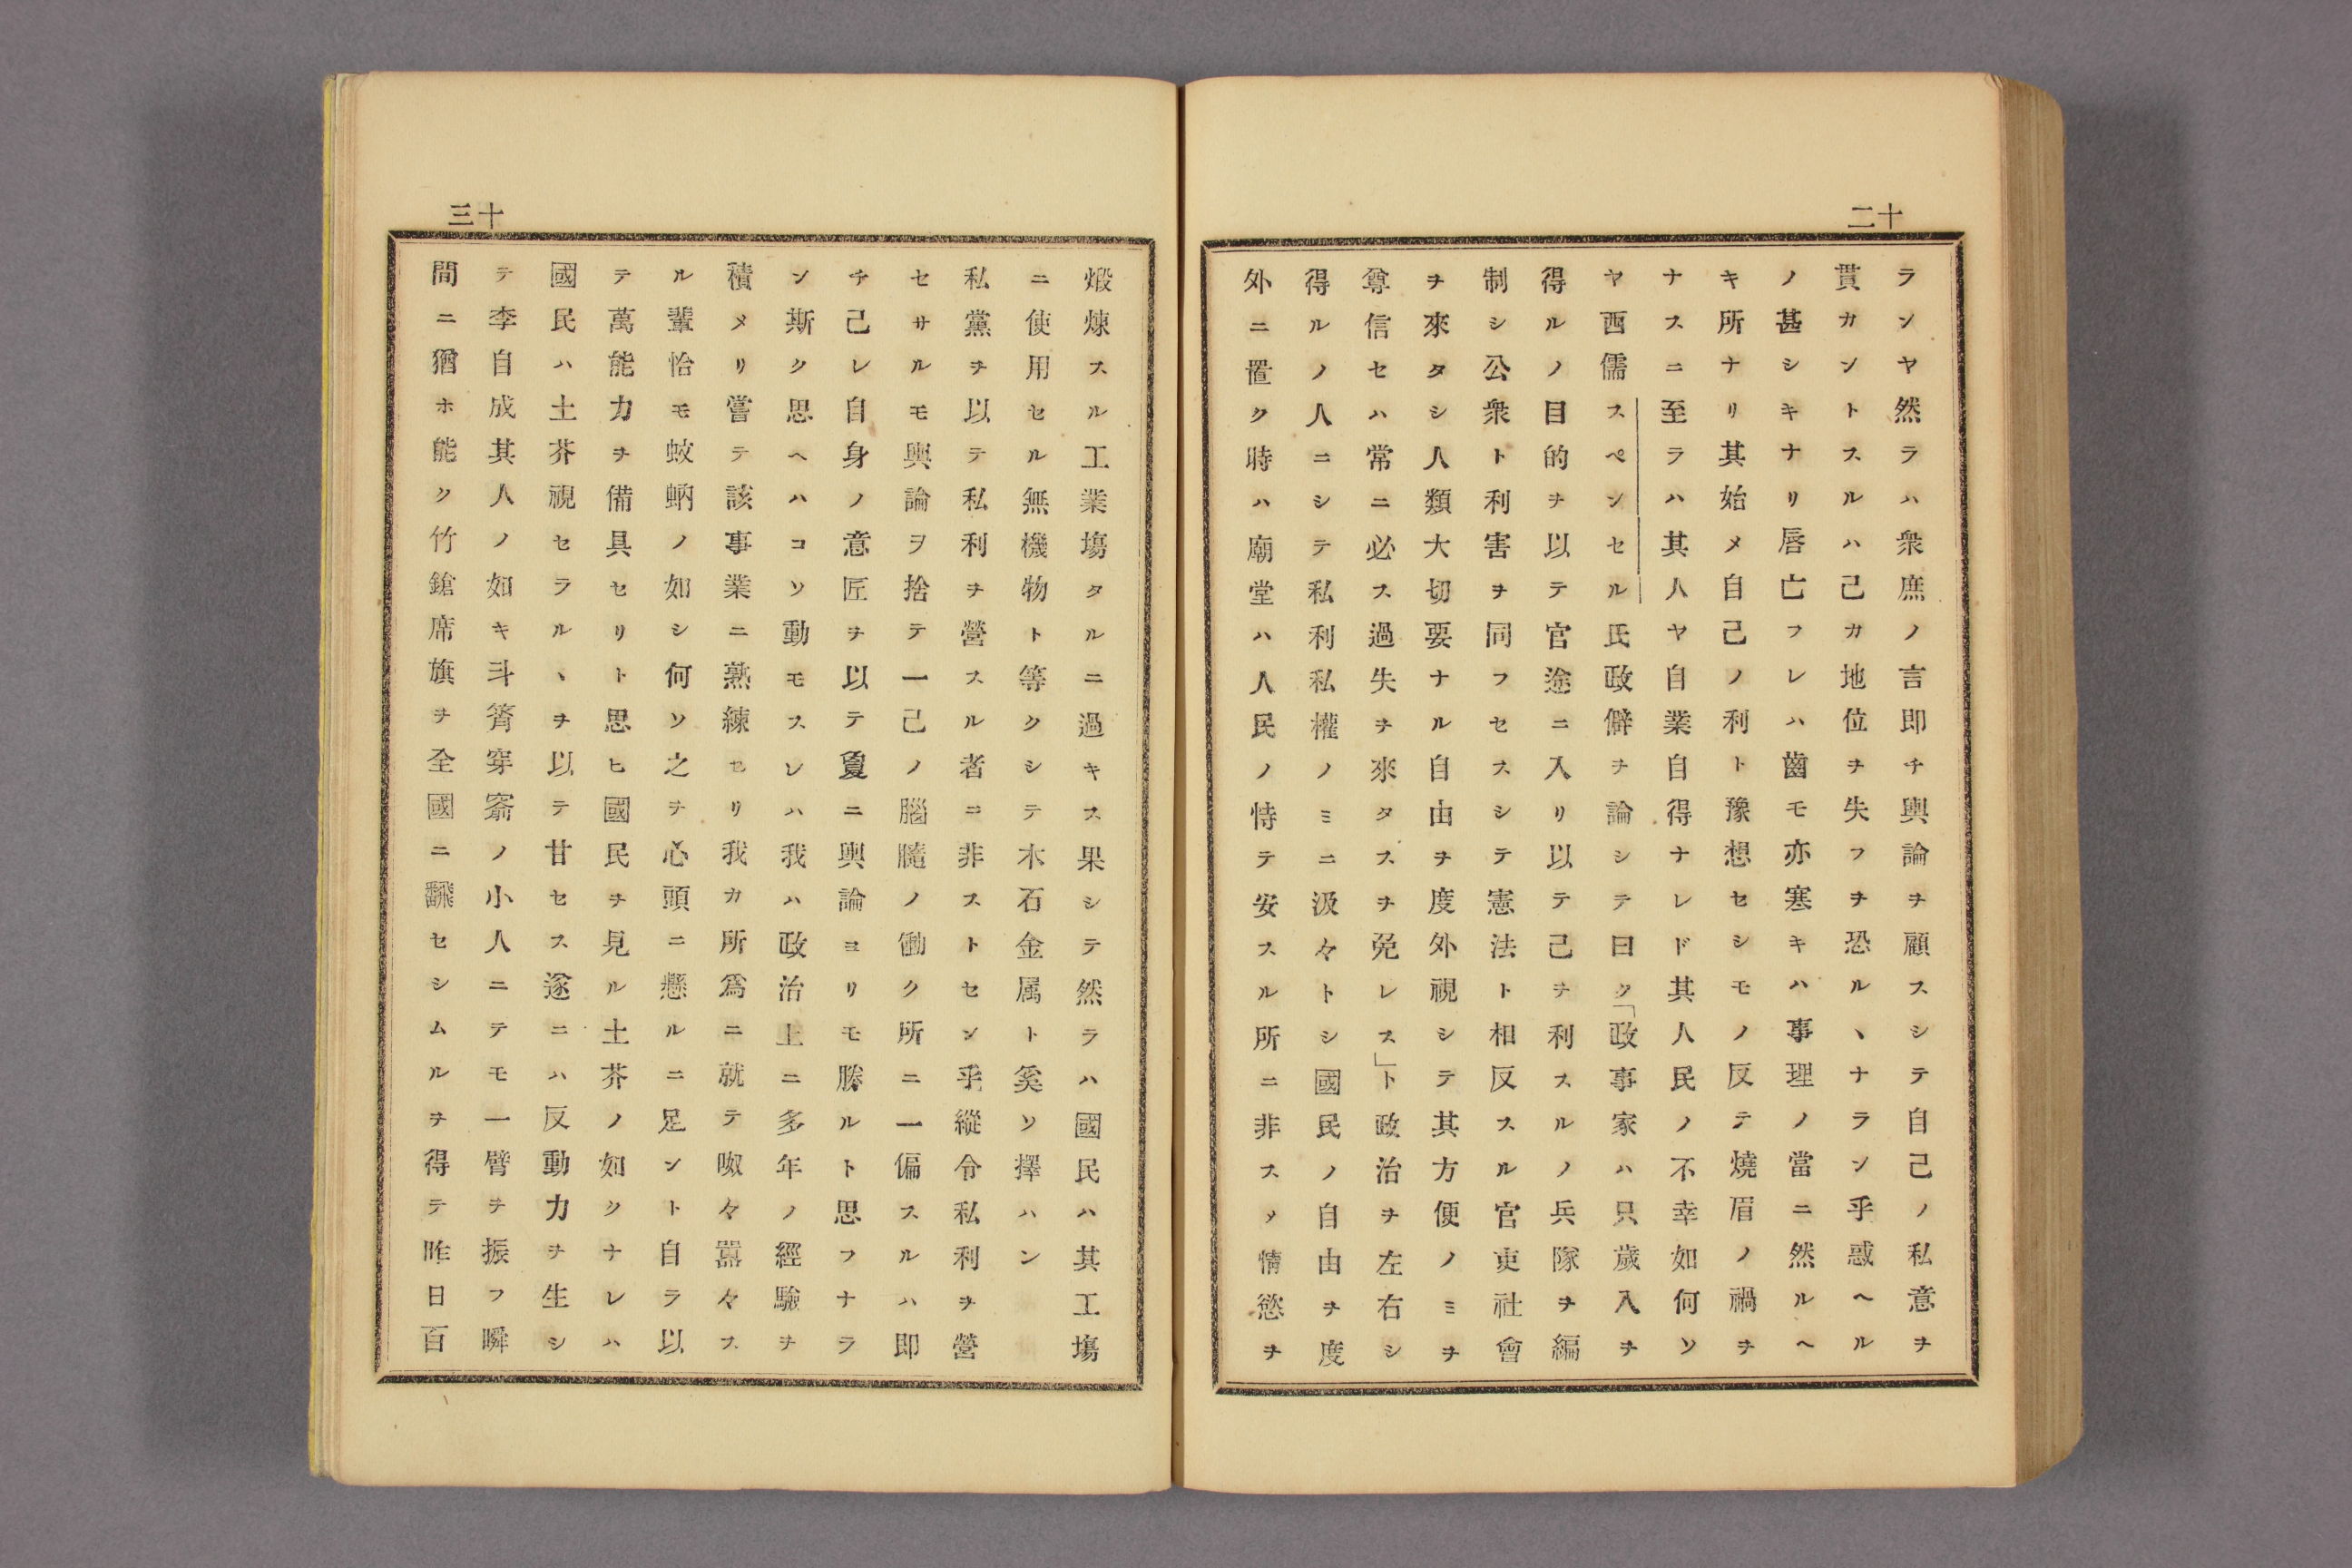 十二
ランヤ然ラハ衆庶ノ言即チ輿論ヲ顧スシテ自己ノ私意ヲ
貫カントスルハ己カ地位ヲ失フヲ恐ルヽナラン乎惑ヘル
ノ甚シキナリ唇亡フレハ齒モ亦寒キハ事理ノ當ニ然ルヘ
キ所ナリ其始メ自己ノ利ト豫想セシモノ反テ燒眉ノ禍ヲ
ナスニ至ラハ其人ヤ自業自得ナレド其人民ノ不幸如何ソ
ヤ西儒スペンセル氏政僻ヲ論シテ曰ク「政事家ハ只歲入ヲ
得ルノ目的ヲ以テ官途ニ入リ以テ己ヲ利スルノ兵隊ヲ編
制シ公衆ト利害ヲ同フセスシテ憲法ト相反スル官吏社會
ヲ來タシ人類大切要ナル自由ヲ度外視シテ其方便ノミヲ
尊信セハ常ニ必ス過失ヲ來タスヲ免レス」ト政治ヲ左右シ
得ルノ人ニシテ私利私權ノミニ汲々トシ國民ノ自由ヲ度
外ニ置ク時ハ廟堂ハ人民ノ恃テ安スル所ニ非スメ情慾ヲ
十三
煅煉スル工業塲タルニ過キス果シテ然ラハ國民ハ其工塲
ニ使用セル無機物ト等クシテ木石金属ト奚ソ擇ハン
私黨ヲ以テ私利ヲ營スル者ニ非ストセン乎縱令私利ヲ營
セサルモ輿論ヲ捨テ一己ノ腦髓ノ働ク所ニ一偏スルハ即
チ己レ自身ノ意匠ヲ以テ夐ニ輿論ヨリモ勝ルト思フナラ
ン斯ク思ヘハコソ動モスレハ我ハ政治上ニ多年ノ經驗ヲ
積メリ嘗テ該事業ニ熟練セリ我カ所爲ニ就テ呶々囂々ス
ル輩恰モ蚊蚋ノ如シ何ソ之ヲ心頭ニ懸ルニ足ント自ラ以
テ萬能力ヲ備具セリト思ヒ國民ヲ見ル土芥ノ如クナレハ
國民ハ土芥視セラルヽヲ以テ甘セス遂ニハ反動力ヲ生シ
テ李自成其人ノ如キ斗筲穿窬ノ小人ニテモ一臂ヲ振フ瞬
間ニ猶ホ能ク竹鎗席旗ヲ全國ニ飜セシムルヲ得テ昨日百